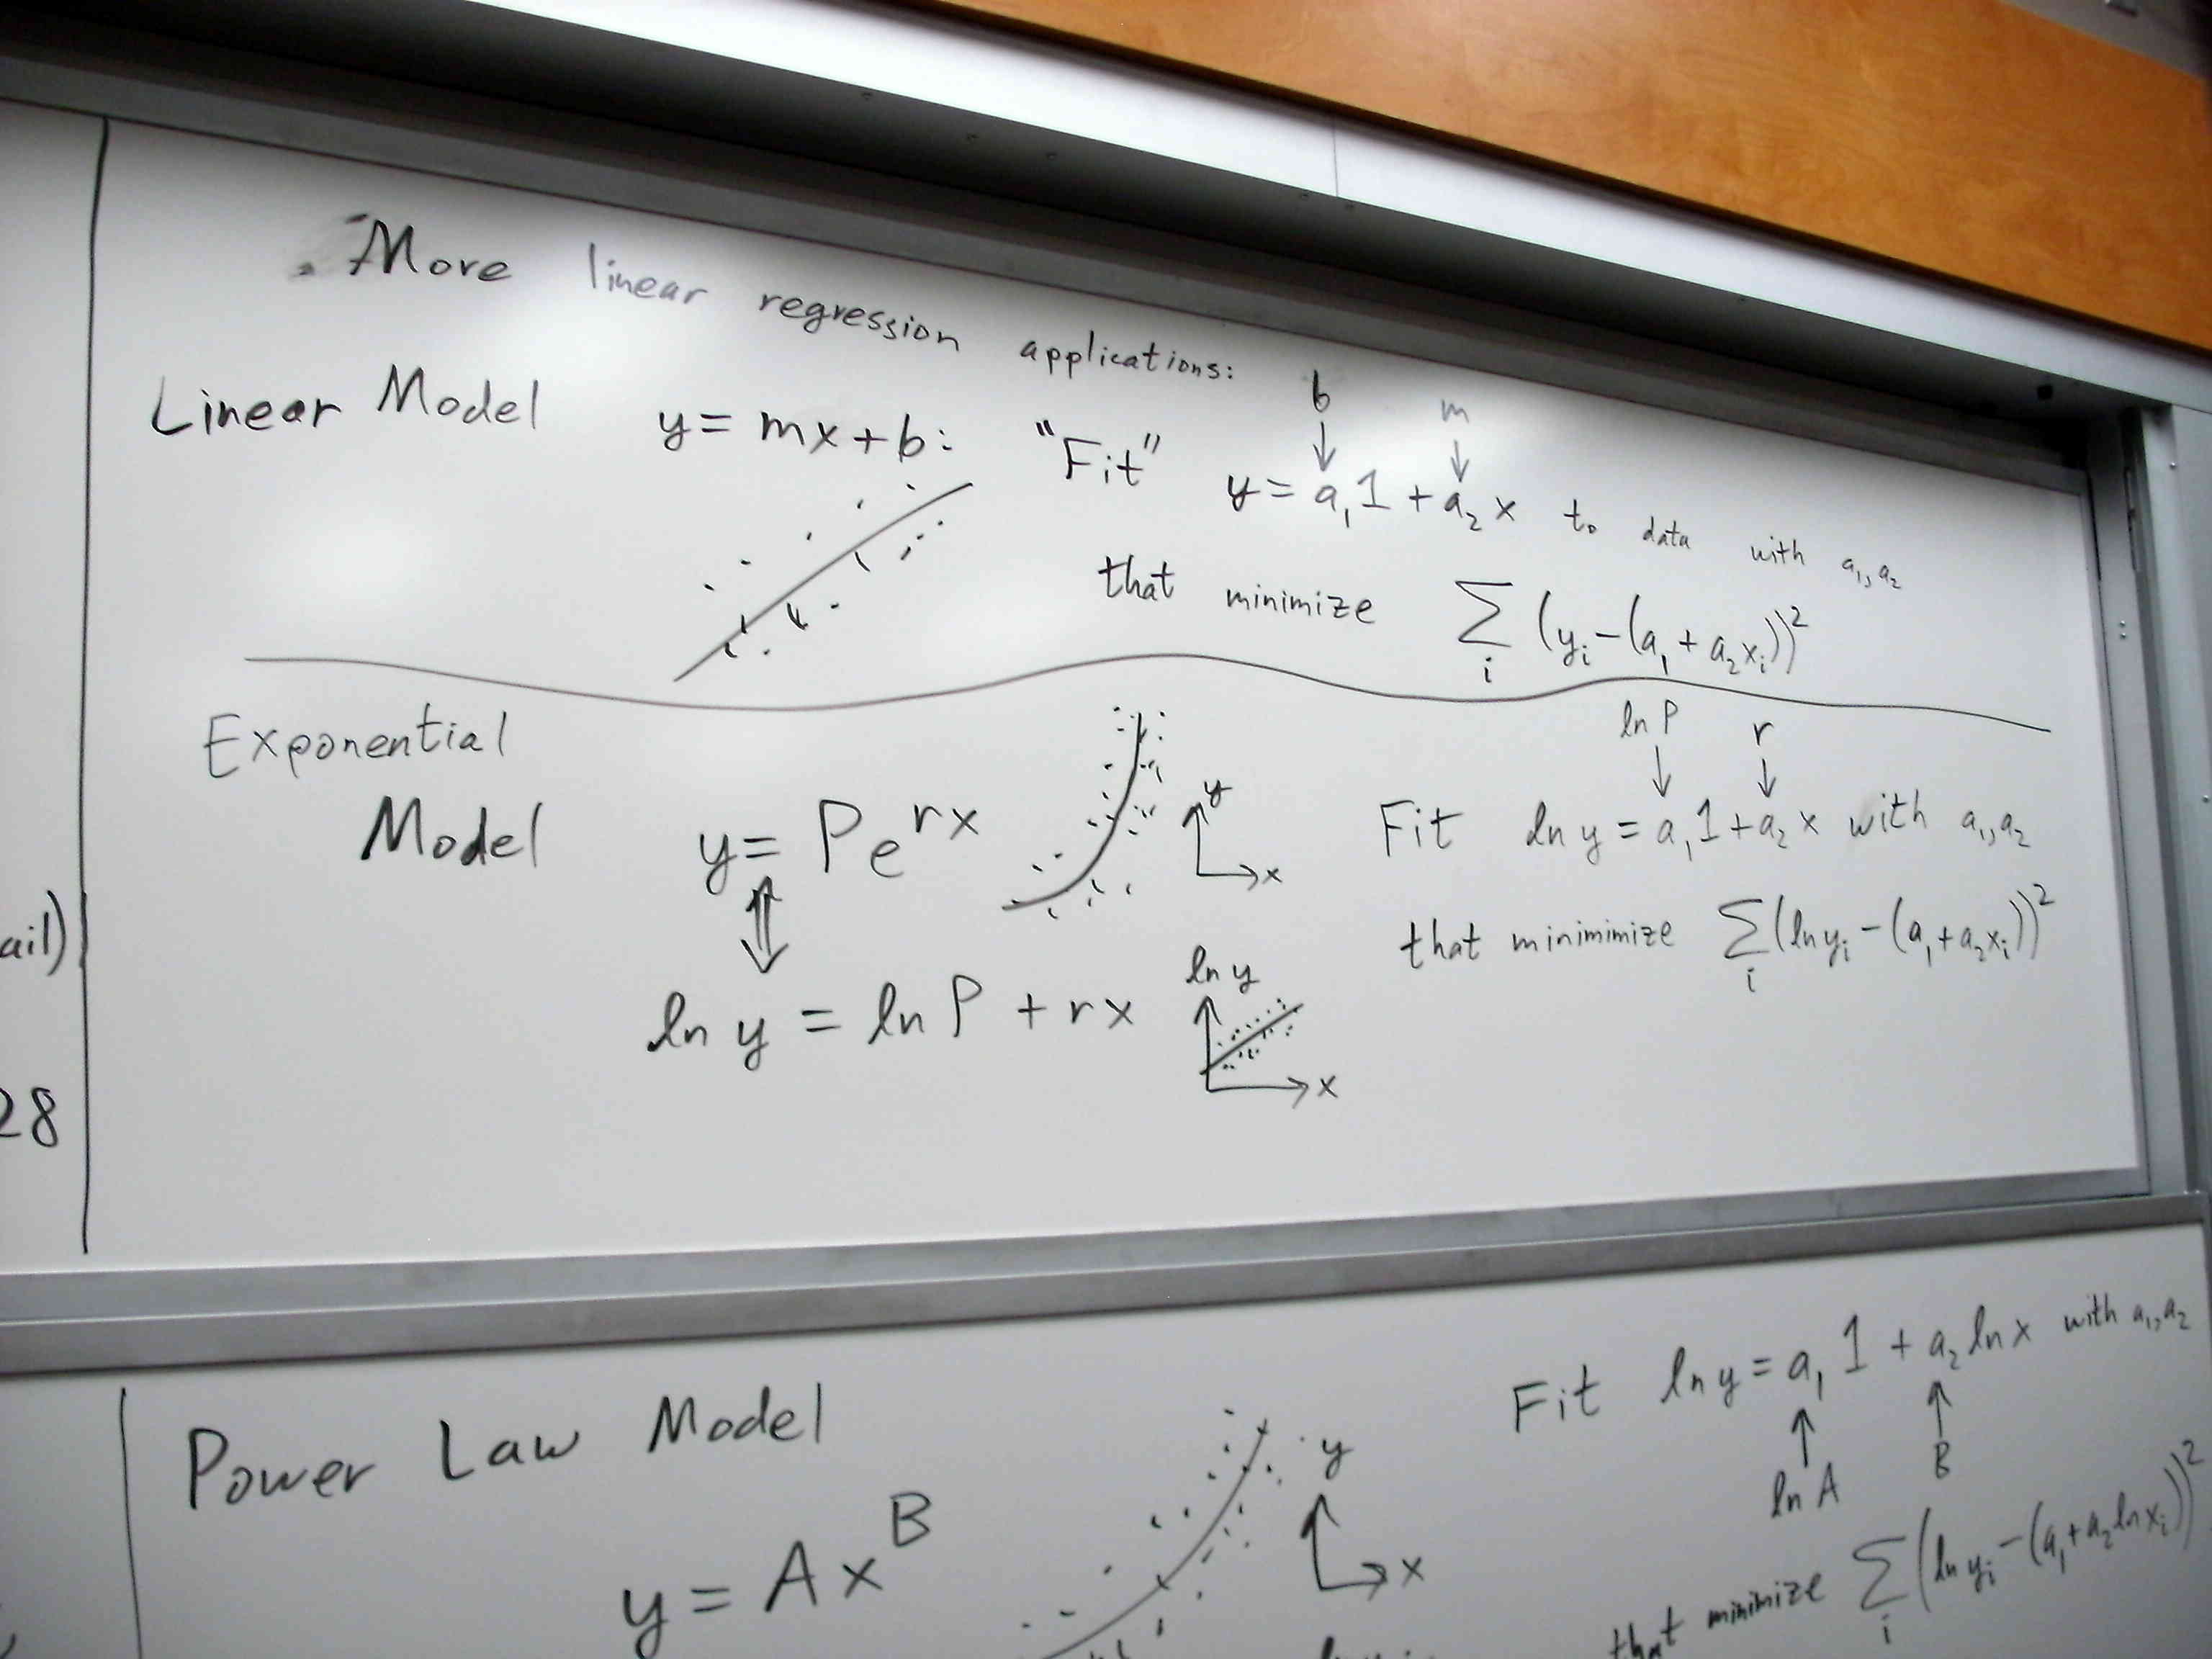 More linear regression applications:
Linear Model y = mx + b: "Fit" y = a₁1 + a₂x to data with a₁, a₂
b m
that minimize ∑ᵢ (yᵢ - (a₁ + a₂xᵢ))²
Exponential
Model y = Pe^{rx}
y
x
ln P r
Fit ln y = a₁1 + a₂x with a₁, a₂
that minimimize ∑ᵢ (ln yᵢ - (a₁ + a₂xᵢ))²
ln y = ln P + rx
ln y
x
ail)
28
Power Law Model
y = Ax^B
y
x
Fit ln y = a₁1 + a₂ ln x with a₁, a₂
ln A B
that minimize ∑ᵢ (ln yᵢ - (a₁ + a₂ ln xᵢ))²